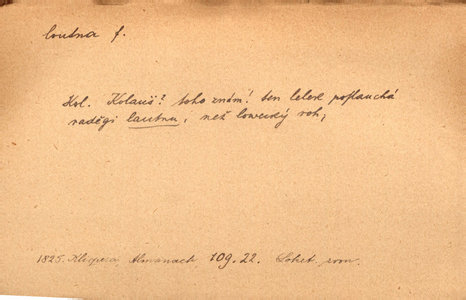 loutna f.
Kol. Kolauš? toho znám! ten lelek poslauchá
raděgi lautnu, než lowecký roh,
1825. Klicpera, Almanach 109.22. Loket, rom.